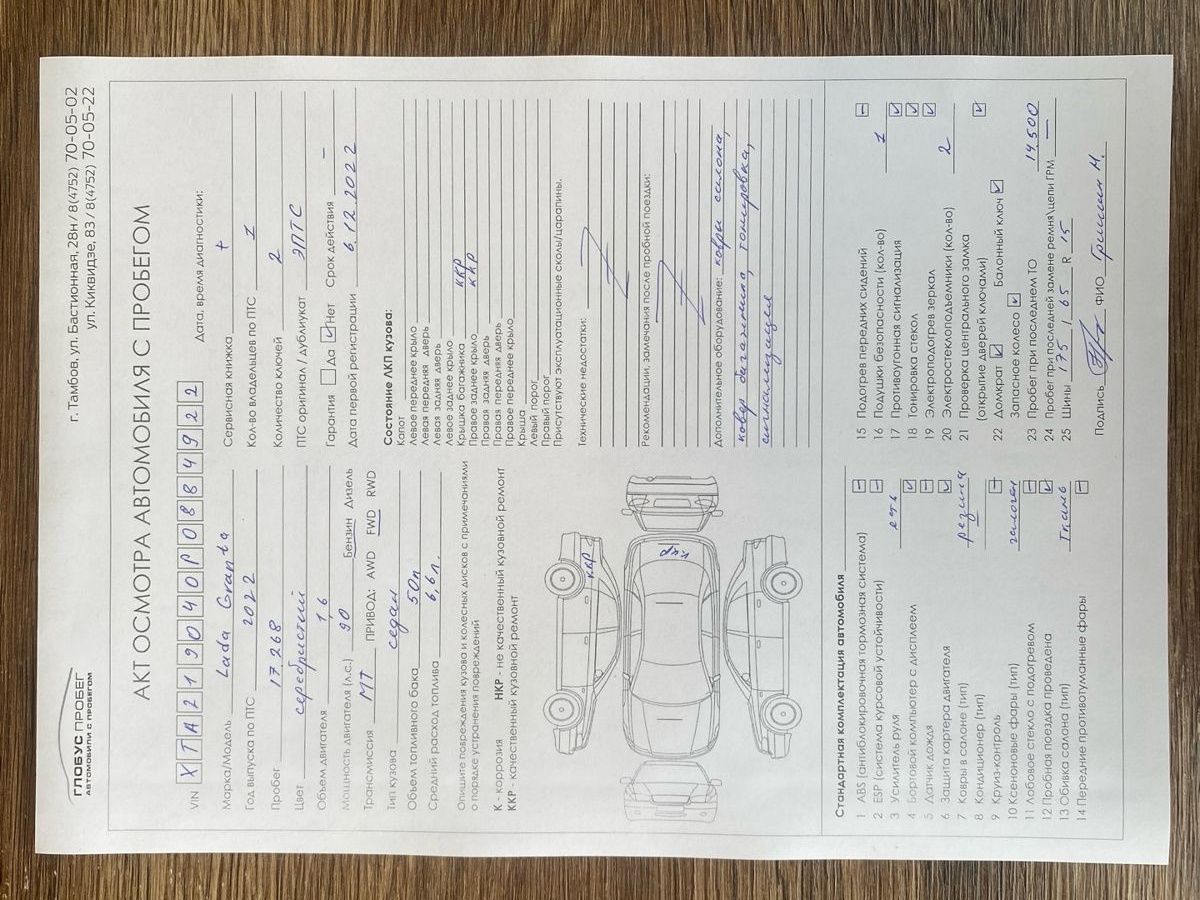 ГЛОБУС ПРОБЕГ
АВТОМОБИЛИ С ПРОБЕГОМ
г. Тамбов, ул. Бастионная, 28н / 8(4752) 70-05-02
ул. Киквидзе, 83 / 8(4752) 70-05-22
АКТ ОСМОТРА АВТОМОБИЛЯ С ПРОБЕГОМ
VIN XTA219040P0884922
Дата, время диагностики:
Марка/Модель Lada Granta
Год выпуска по ПТС 2022
Пробег 17268
Цвет серебристый
Объем двигателя 1,6
Мощность двигателя (л.с.) 90 Бензин Дизель
Трансмиссия МТ ПРИВОД: AWD FWD RWD
Тип кузова седан
Объем топливного бака 50л
Средний расход топлива 6,6л.
Опишите повреждения кузова и колесных дисков с примечаниями
о порядке устранения повреждений
К - коррозия НКР - не качественный кузовной ремонт
ККР - качественный кузовной ремонт
ккр
ккр
Сервисная книжка +
Кол-во владельцев по ПТС 1
Количество ключей 2
ПТС оригинал / дубликат ЭПТС
Гарантия Да ✓ Нет Срок действия —
Дата первой регистрации 6.12.2022
Состояние ЛКП кузова:
Капот
Левое переднее крыло
Левая передняя дверь
Левая задняя дверь
Левое заднее крыло
Крышка багажника ККР
Правое заднее крыло ККР
Правая задняя дверь
Правая передняя дверь
Правое переднее крыло
Крыша
Левый порог
Правый порог
Присутствуют эксплуатационные сколы/царапины.
Технические недостатки:
Рекомендации, замечания после пробной поездки:
Дополнительное оборудование: ковры салона,
ковер багажника, тонировка,
сигнализация
Стандартная комплектация автомобиля
1 ABS (антиблокировочная тормозная система) —
2 ESP (система курсовой устойчивости) —
3 Усилитель руля есть
4 Бортовой компьютер с дисплеем ✓
5 Датчик дождя —
6 Защита картера двигателя ✓
7 Ковры в салоне (тип) резина
8 Кондиционер (тип) —
9 Круиз-контроль —
10 Ксеноновые фары (тип) галоген
11 Лобовое стекло с подогревом —
12 Пробная поездка проведена ✓
13 Обивка салона (тип) ткань
14 Передние противотуманные фары —
15 Подогрев передних сидений —
16 Подушки безопасности (кол-во) 1
17 Противоугонная сигнализация ✓
18 Тонировка стекол ✓
19 Электроподогрев зеркал ✓
20 Электростеклоподъемники (кол-во) 2
21 Проверка центрального замка
(открытие дверей ключами) ✓
22 Домкрат ✓ Балонный ключ ✓
Запасное колесо ✓
23 Пробег при последнем ТО 14500
24 Пробег при последней замене ремня\цепи ГРМ —
25 Шины 175 / 65 R 15
Подпись ФИО